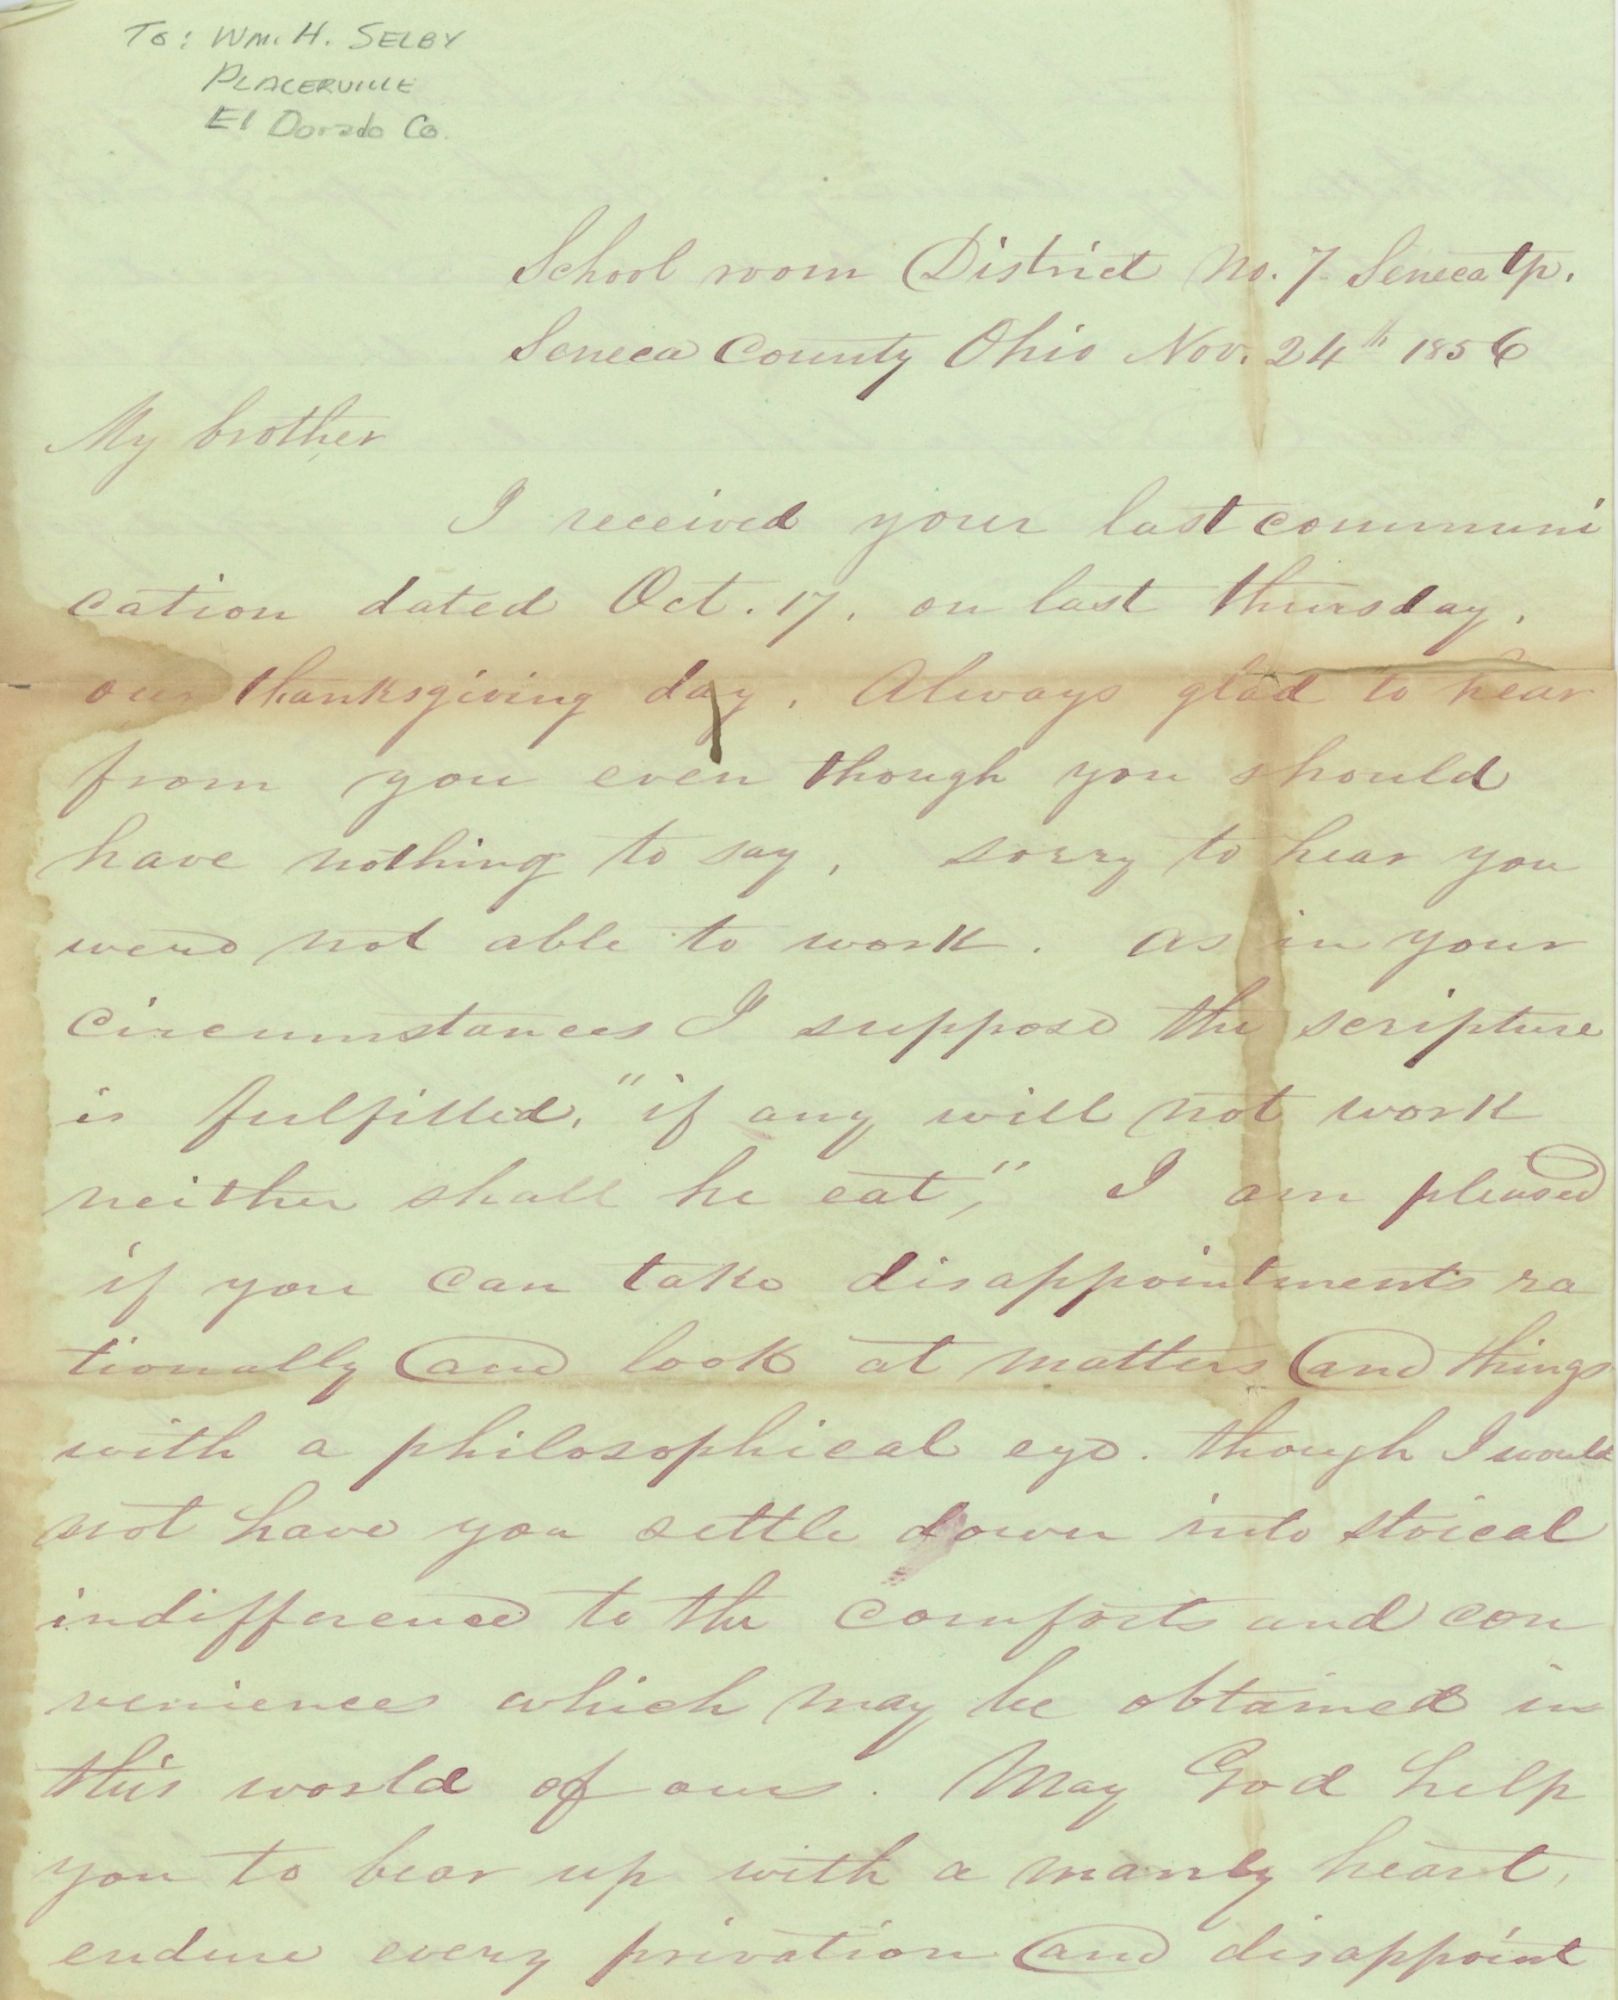 To: Wm. H. Selby
Placerville
El Dorado Co.
School room District No. 7 Seneca tp.
Seneca County Ohio Nov. 24th 1856
My brother
I received your last communi
cation dated Oct. 17. on last thursday,
our thanksgiving day. Always glad to hear
from you even though you should
have nothing to say, sorry to hear you
were not able to work. as in your
circumstances I suppose the scripture
is fulfilled, "if any will not work
neither shall he eat," I am pleased
if you can take disappointments ra
tionally and look at matters and things
with a philosophical eye. though I would
not have you settle down into stoical
indifference to the comforts and con
veniences which may be obtained in
this world of ours. May God help
you to bear up with a manly heart,
endure every privation and disappoint